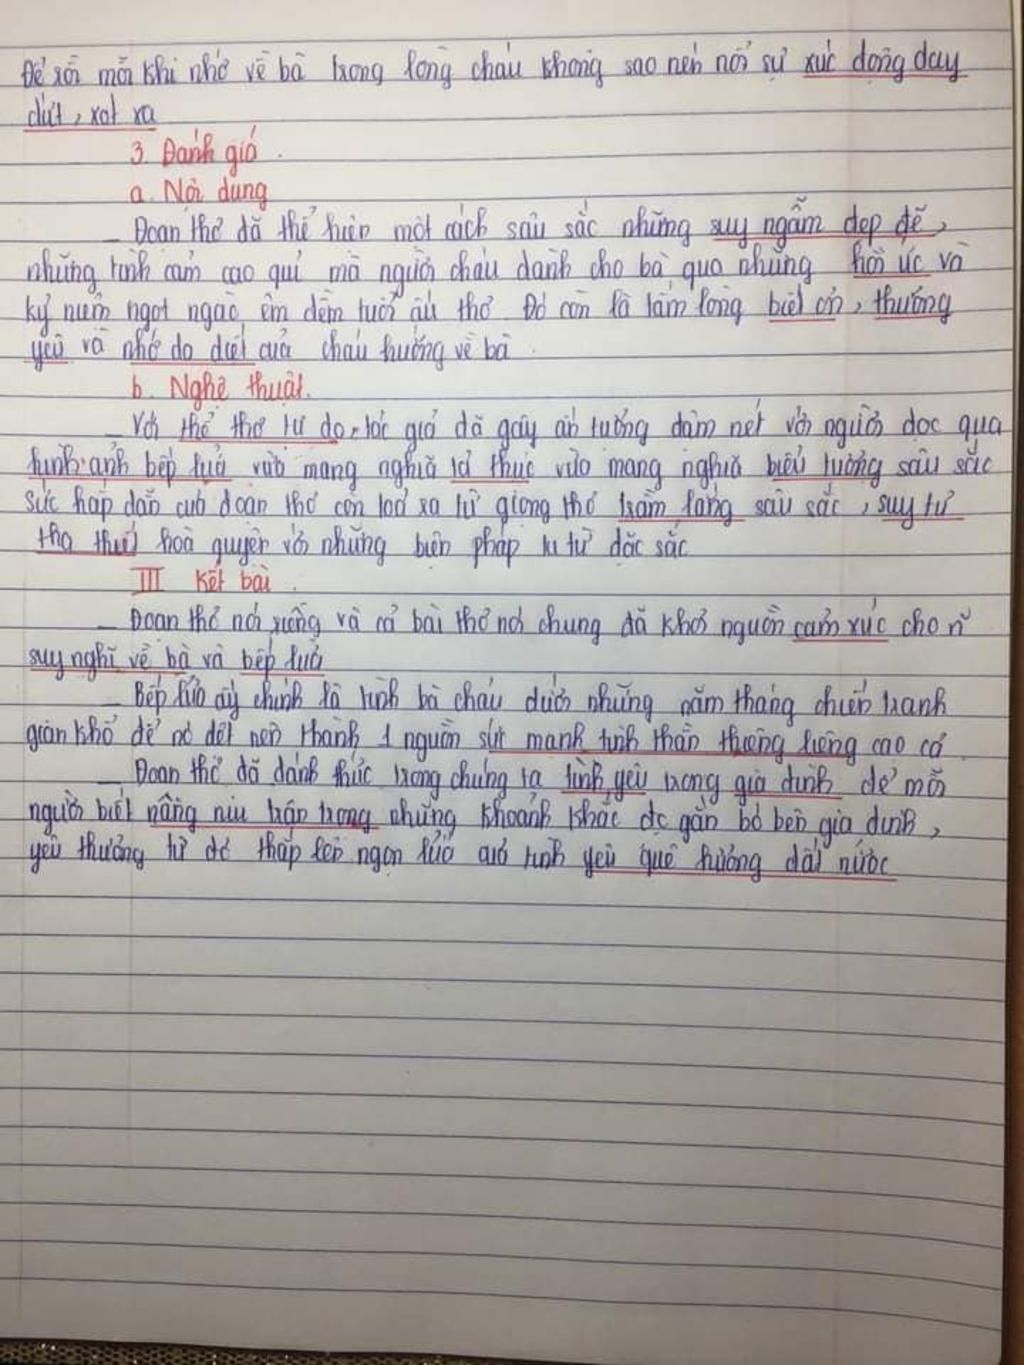 Để rồi mỗi khi nhớ về bà trong lòng cháu không sao nén nổi sự xúc động day
dứt, xót xa
3. Đánh giá.
a. Nội dung
_ Đoạn thơ đã thể hiện một cách sâu sắc những suy ngẫm đẹp đẽ,
những tình cảm cao quí mà người cháu dành cho bà qua những hồi ức và
kỷ niệm ngọt ngào êm đềm tuổi ấu thơ. Đó còn là tấm lòng biết ơn, thương
yêu và nhớ da diết của cháu hướng về bà.
b. Nghệ thuật.
_ Với thể thơ tự do, tác giả đã gây ấn tượng đậm nét với người đọc qua
hình ảnh bếp lửa vừa mang nghĩa tả thực vừa mang nghĩa biểu tượng sâu sắc
sức hấp dẫn của đoạn thơ còn toả ra từ giọng thơ trầm lắng sâu sắc, suy tư
tha thiết hoà quyện với những biện pháp tu từ đặc sắc
III Kết bài.
_ Đoạn thơ nói riêng và cả bài thơ nói chung đã khơi nguồn cảm xúc cho ~n
suy nghĩ về bà và bếp lửa
_ Bếp lửa ấy chính là tình bà cháu dưới những năm tháng chiến tranh
gian khổ để nó dệt nên thành 1 nguồn sức mạnh tinh thần thiêng liêng cao cả
_ Đoạn thơ đã đánh thức trong chúng ta tình yêu trong gia đình để mỗi
người biết nâng niu trân trọng những khoảnh khắc đc gắn bó bên gia đình,
yêu thương từ đó thắp lên ngọn lửa của tình yêu quê hương đất nước